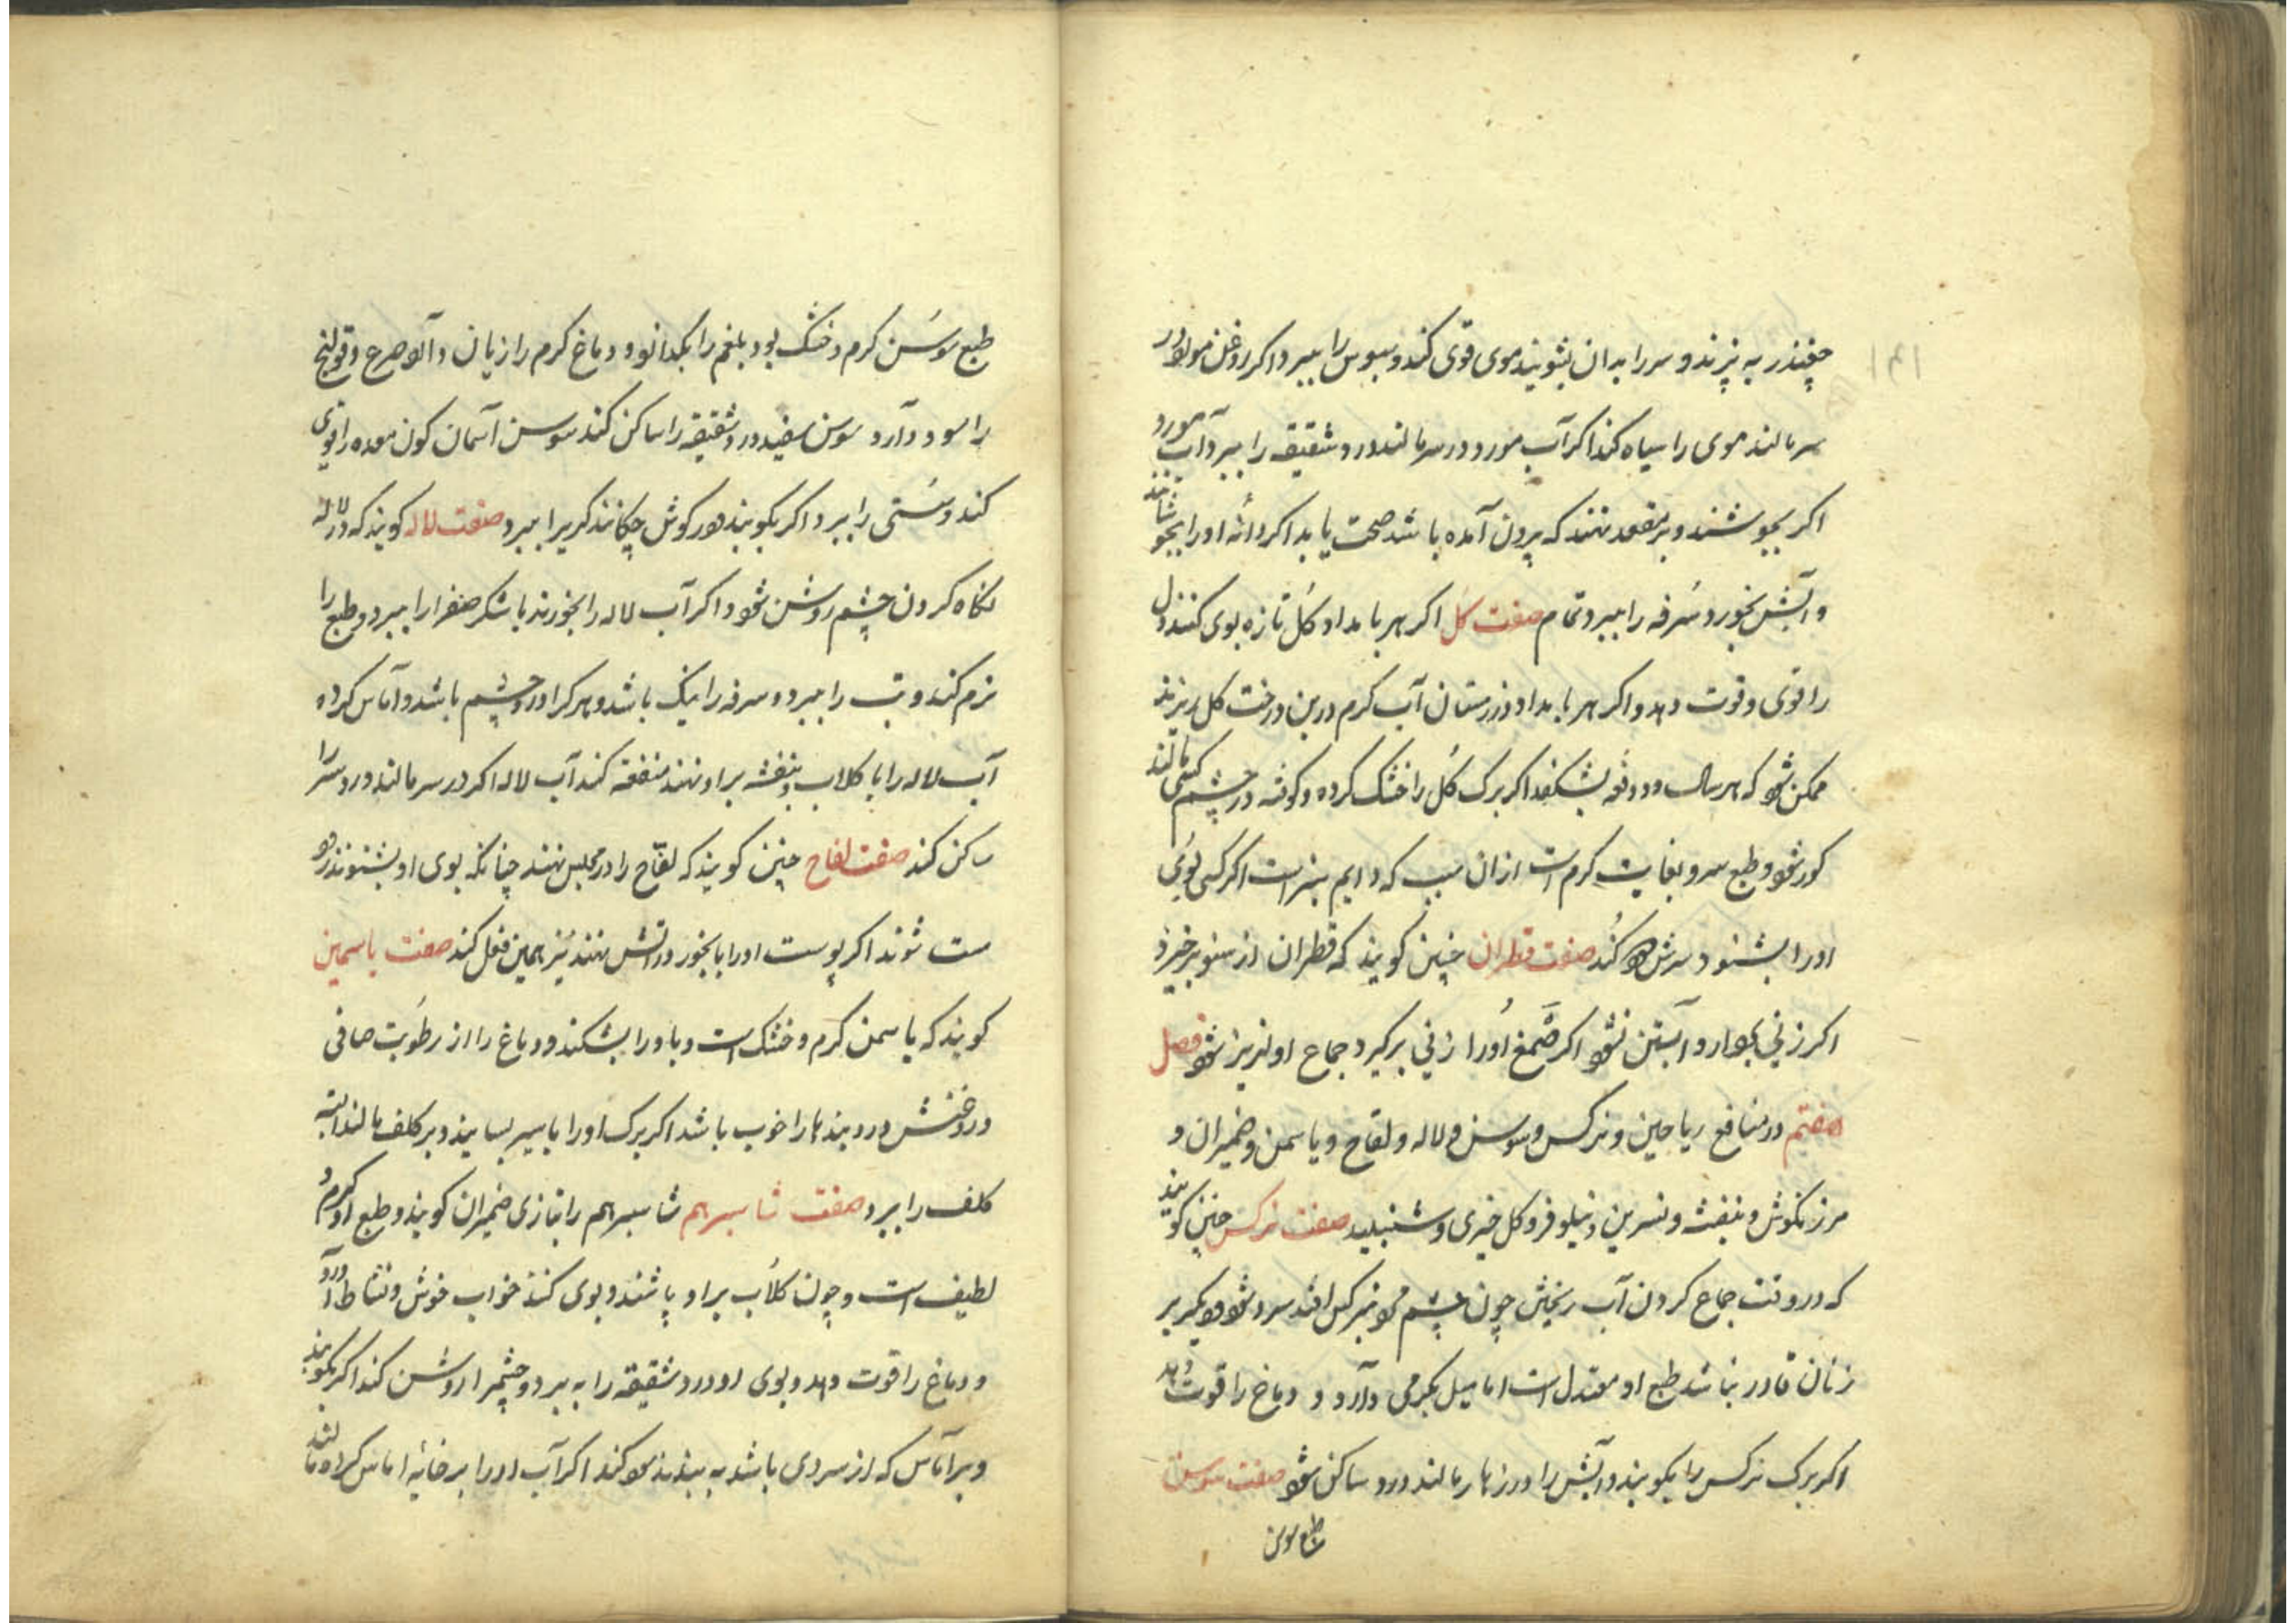 چغندر به پزند و سر را به ان بشویند موی قوی کند و سبوس را ببرد و اکر روغن مورد در
سر مالند موی را سیاه کند اکر آب مورد در سر مالند درد شقیقه را ببرد و آب مورد
اکر بجوشند و بر مقعد نهند که بیرون آمده باشد صحت یابد اکر دانهٔ او را بجوشانند
و آبش بخورد سُرفه را ببرد تمام صفت کل اکر هر بامداد کُل تازه بوی کنند دل
را قوی و قوت دهد و اکر هر بامداد در زمستان آب کرم در بن درخت کل ریزند
ممکن شود که هر سال دو دفعه بشکفد اکر برک کُل را خشک کرده و کوفته در چشم کسی مالند
کور شود و طبع سرو بغایت کرم است از ان سبب که دایم سبز است اکر کسی بوی
او را بشنود سرش کند صفت قطران چنین کویند که قطران از صنوبر خیزد
اکر زنی بخود بردارد آبستن نشود اکر صَمغ اورا زنی برکیرد جماع او لذیذ شود فصل
هفتم در منافع ریاحین و نرکس و سوسن و لاله و لفاح و یاسمن و ضمیران و
مرزنکوش و بنفشه و نسرین و نیلوفر و کل خیری و شنبلید صفت نرکس چنین کویند
که در وقت جماع کردن آب ریختن چون چشم مرد بنرکس افتد سرد شود دیکر بر
زنان قادر نباشد طبع او معتدل است اما میل بکرمی دارد و دماغ را قوت دهد
اکر برک نرکس را بکویند و آبش را در زهار مالند درد ساکن شود صفت سوسن
طبع سوسن
طبع سوسَن کرم و خشک بود بلغم را بکدازد و دماغ کرم را زیان دارد صرع و قولنج
را سود دارد سوسن سفید درد شقیقه را ساکن کند سوسن آسمان کون معده را قوی
کند و سُستی را ببرد اکر بکویند در کوش چکانند کری را ببرد صفت لاله کویند که در لاله
نکاه کردن چشم روشن شود و اکر آب لاله را بخورند با شکر صفرا را ببرد و طبع را
نرم کند و تب را ببرد و سرفه را نیک باشد و هر کرا درد چشم باشد و آماس کرده
آب لاله را با کلاب و بنفشه بر او نهند منفعة کند آب لاله اکر در سر مالند درد سر را
ساکن کند صفت لفاح چنین کویند که لفّاح را در مجلس نهند چنانکه بوی او بشنوند
مست شوند اکر پوست او را با بخور در آتش نهند نیز همین فعل کند صفت یاسمین
کویند که یاسمن کرم و خشک است و باد را بشکند و دماغ را از رطوبت صافی
و روغنش درد بندها را خوب باشد اکر برک او را با سیر بسایند و بر کلف مالند البته
کلف را ببرد صفت شاسپرهم شاسپرهم را بتازی ضمیران کویند و طبع او کرم و
لطیف است و چون کلاب بر او پاشند و بوی کنند خواب خوش و نشاط آورد
و دماغ را قوت دهد و بوی او درد شقیقه را به برد و چشم را روشن کند اکر بکویند
و بر آماس که از سردی باشد به بندند کند اکر آب او را بر خایهٔ اماس کرده مالند